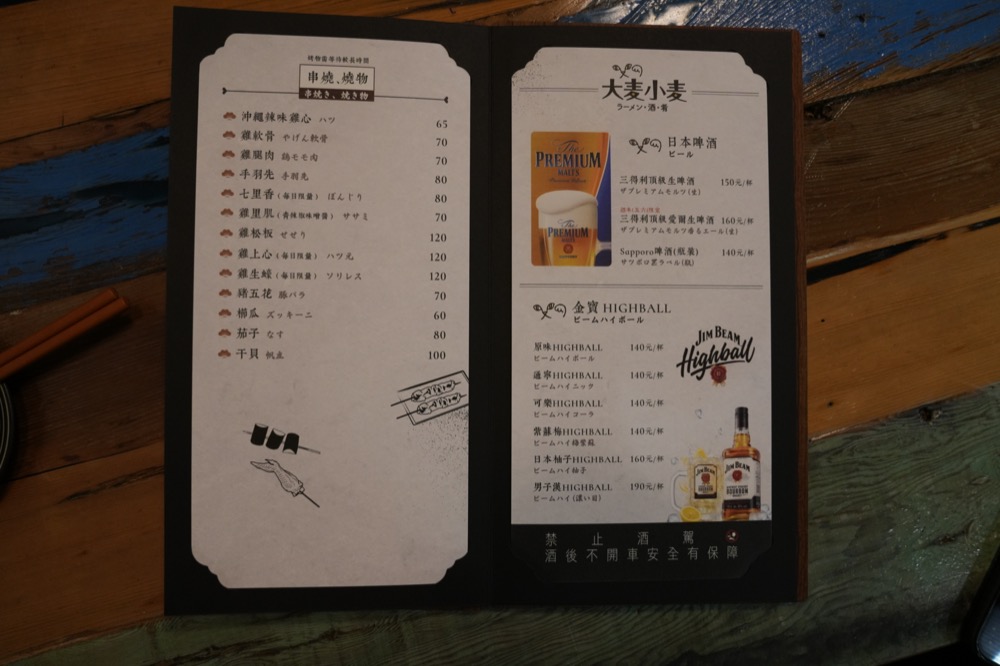 烤物需等待較長時間
串燒、燒物
串焼き、焼き物
沖繩辣味雞心 ハツ 65
雞軟骨 やげん軟骨 70
雞腿肉 鶏モモ肉 70
手羽先 手羽先 80
七里香(每日限量) ぼんじり 80
雞里肌(青辣椒味噌醬) ササミ 70
雞松板 せせり 120
雞上心(每日限量) ハツ元 120
雞生蠔(每日限量) ソリレス 120
豬五花 豚バラ 70
櫛瓜 ズッキーニ 60
茄子 なす 80
干貝 帆立 100
大麦小麦
ラーメン・酒・肴
日本啤酒
ビール
The PREMIUM MALT'S
The PREMIUM MALT'S
三得利頂級生啤酒 150元/杯
ザプレミアムモルツ(生)
三得利頂級愛爾生啤酒 160元/杯
ザプレミアムモルツ香るエール(生)
Sapporo啤酒(瓶裝) 140元/杯
サツポロ黒ラベル(瓶)
金賓 HIGHBALL
ビームハイボール
JIM BEAM
Highball
原味HIGHBALL 140元/杯
ビームハイボール
通寧HIGHBALL 140元/杯
ビームハイニック
可樂HIGHBALL 140元/杯
ビームハイコーラ
紫蘇梅HIGHBALL 140元/杯
ビームハイ梅紫蘇
日本柚子HIGHBALL 160元/杯
ビームハイ柚子
男子漢HIGHBALL 190元/杯
ビームハイ(濃い目)
JIM BEAM
JIM BEAM
BOURBON
禁止酒駕
酒後不開車安全有保障